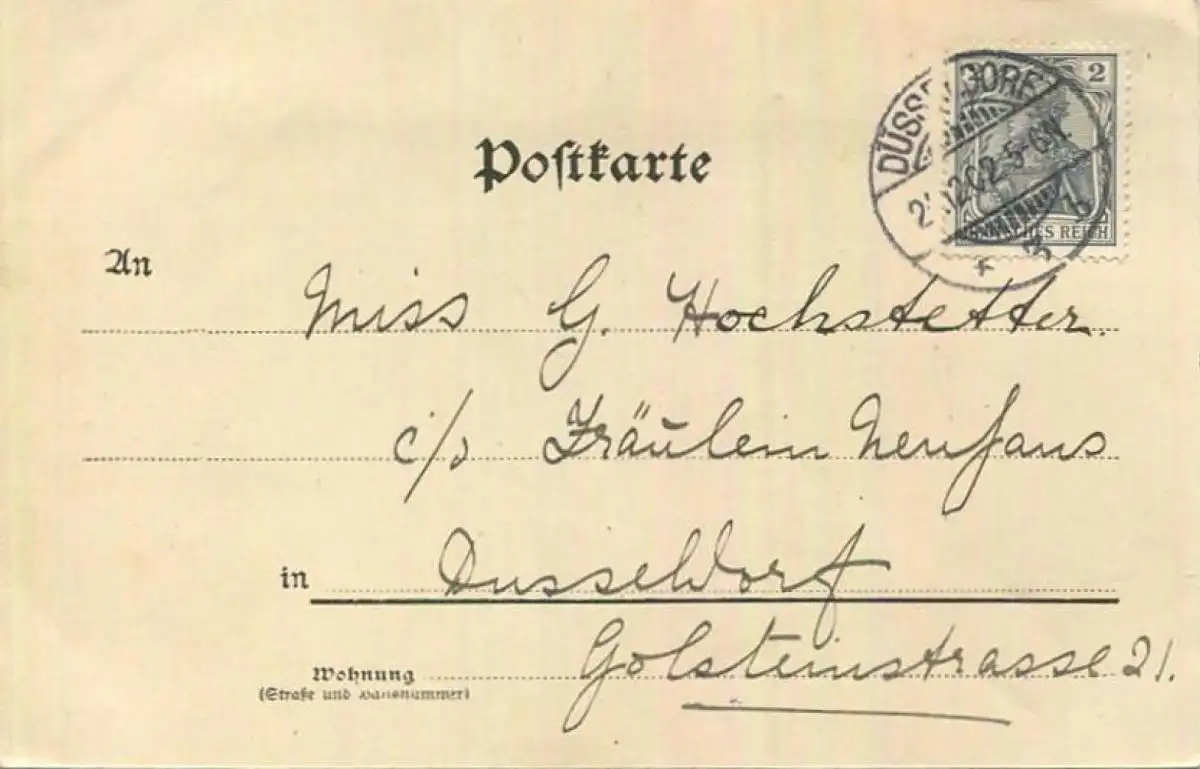 DÜSSELDORF
2
5-6N.
DEUTSCHES REICH
Postkarte
An
Miss G. Hochstetter.
c/o Fräulein Neuhaus
in Dusseldorf
Wohnung Golsteinstrasse 21.
(Straße und Hausnummer)